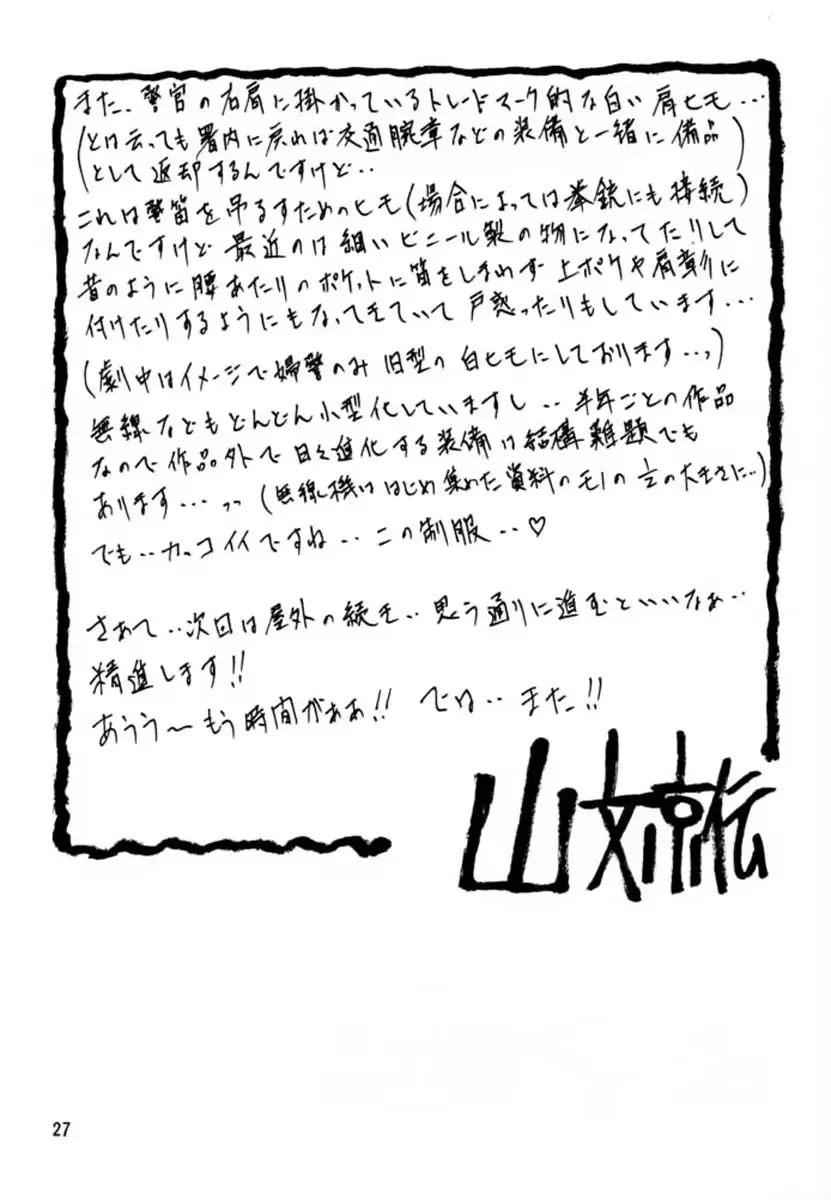 また、警官の右肩に掛かっているトレードマーク的な白い肩ヒモ…
(とは云っても署内に戻れば交通腕章などの装備と一緒に備品
として返却するんですけど‥)
これは警笛を吊るすためのヒモ(場合によっては拳銃にも接続)
なんですけど最近のは細いビニール製の物になってたりして
昔のように腰あたりのポケットに笛をしまわず上ポケや肩章に
付けたりするようにもなってきていて戸惑ったりもしています…
(劇中はイメージで婦警のみ旧型の白ヒモにしております…っ)
無線などもどんどん小型化していますし‥半年ごとの作品
なので作品外で日々進化する装備は結構難題でも
あります…っっ(無線機ははじめ集めた資料のモノの½の大きさに…)
でも‥カッコイイですね‥この制服‥♡
さあて‥次回は屋外の続き‥思う通りに進むといいなぁ‥
精進します!!
あうう〜もう時間がぁぁ!! では‥また!!
27